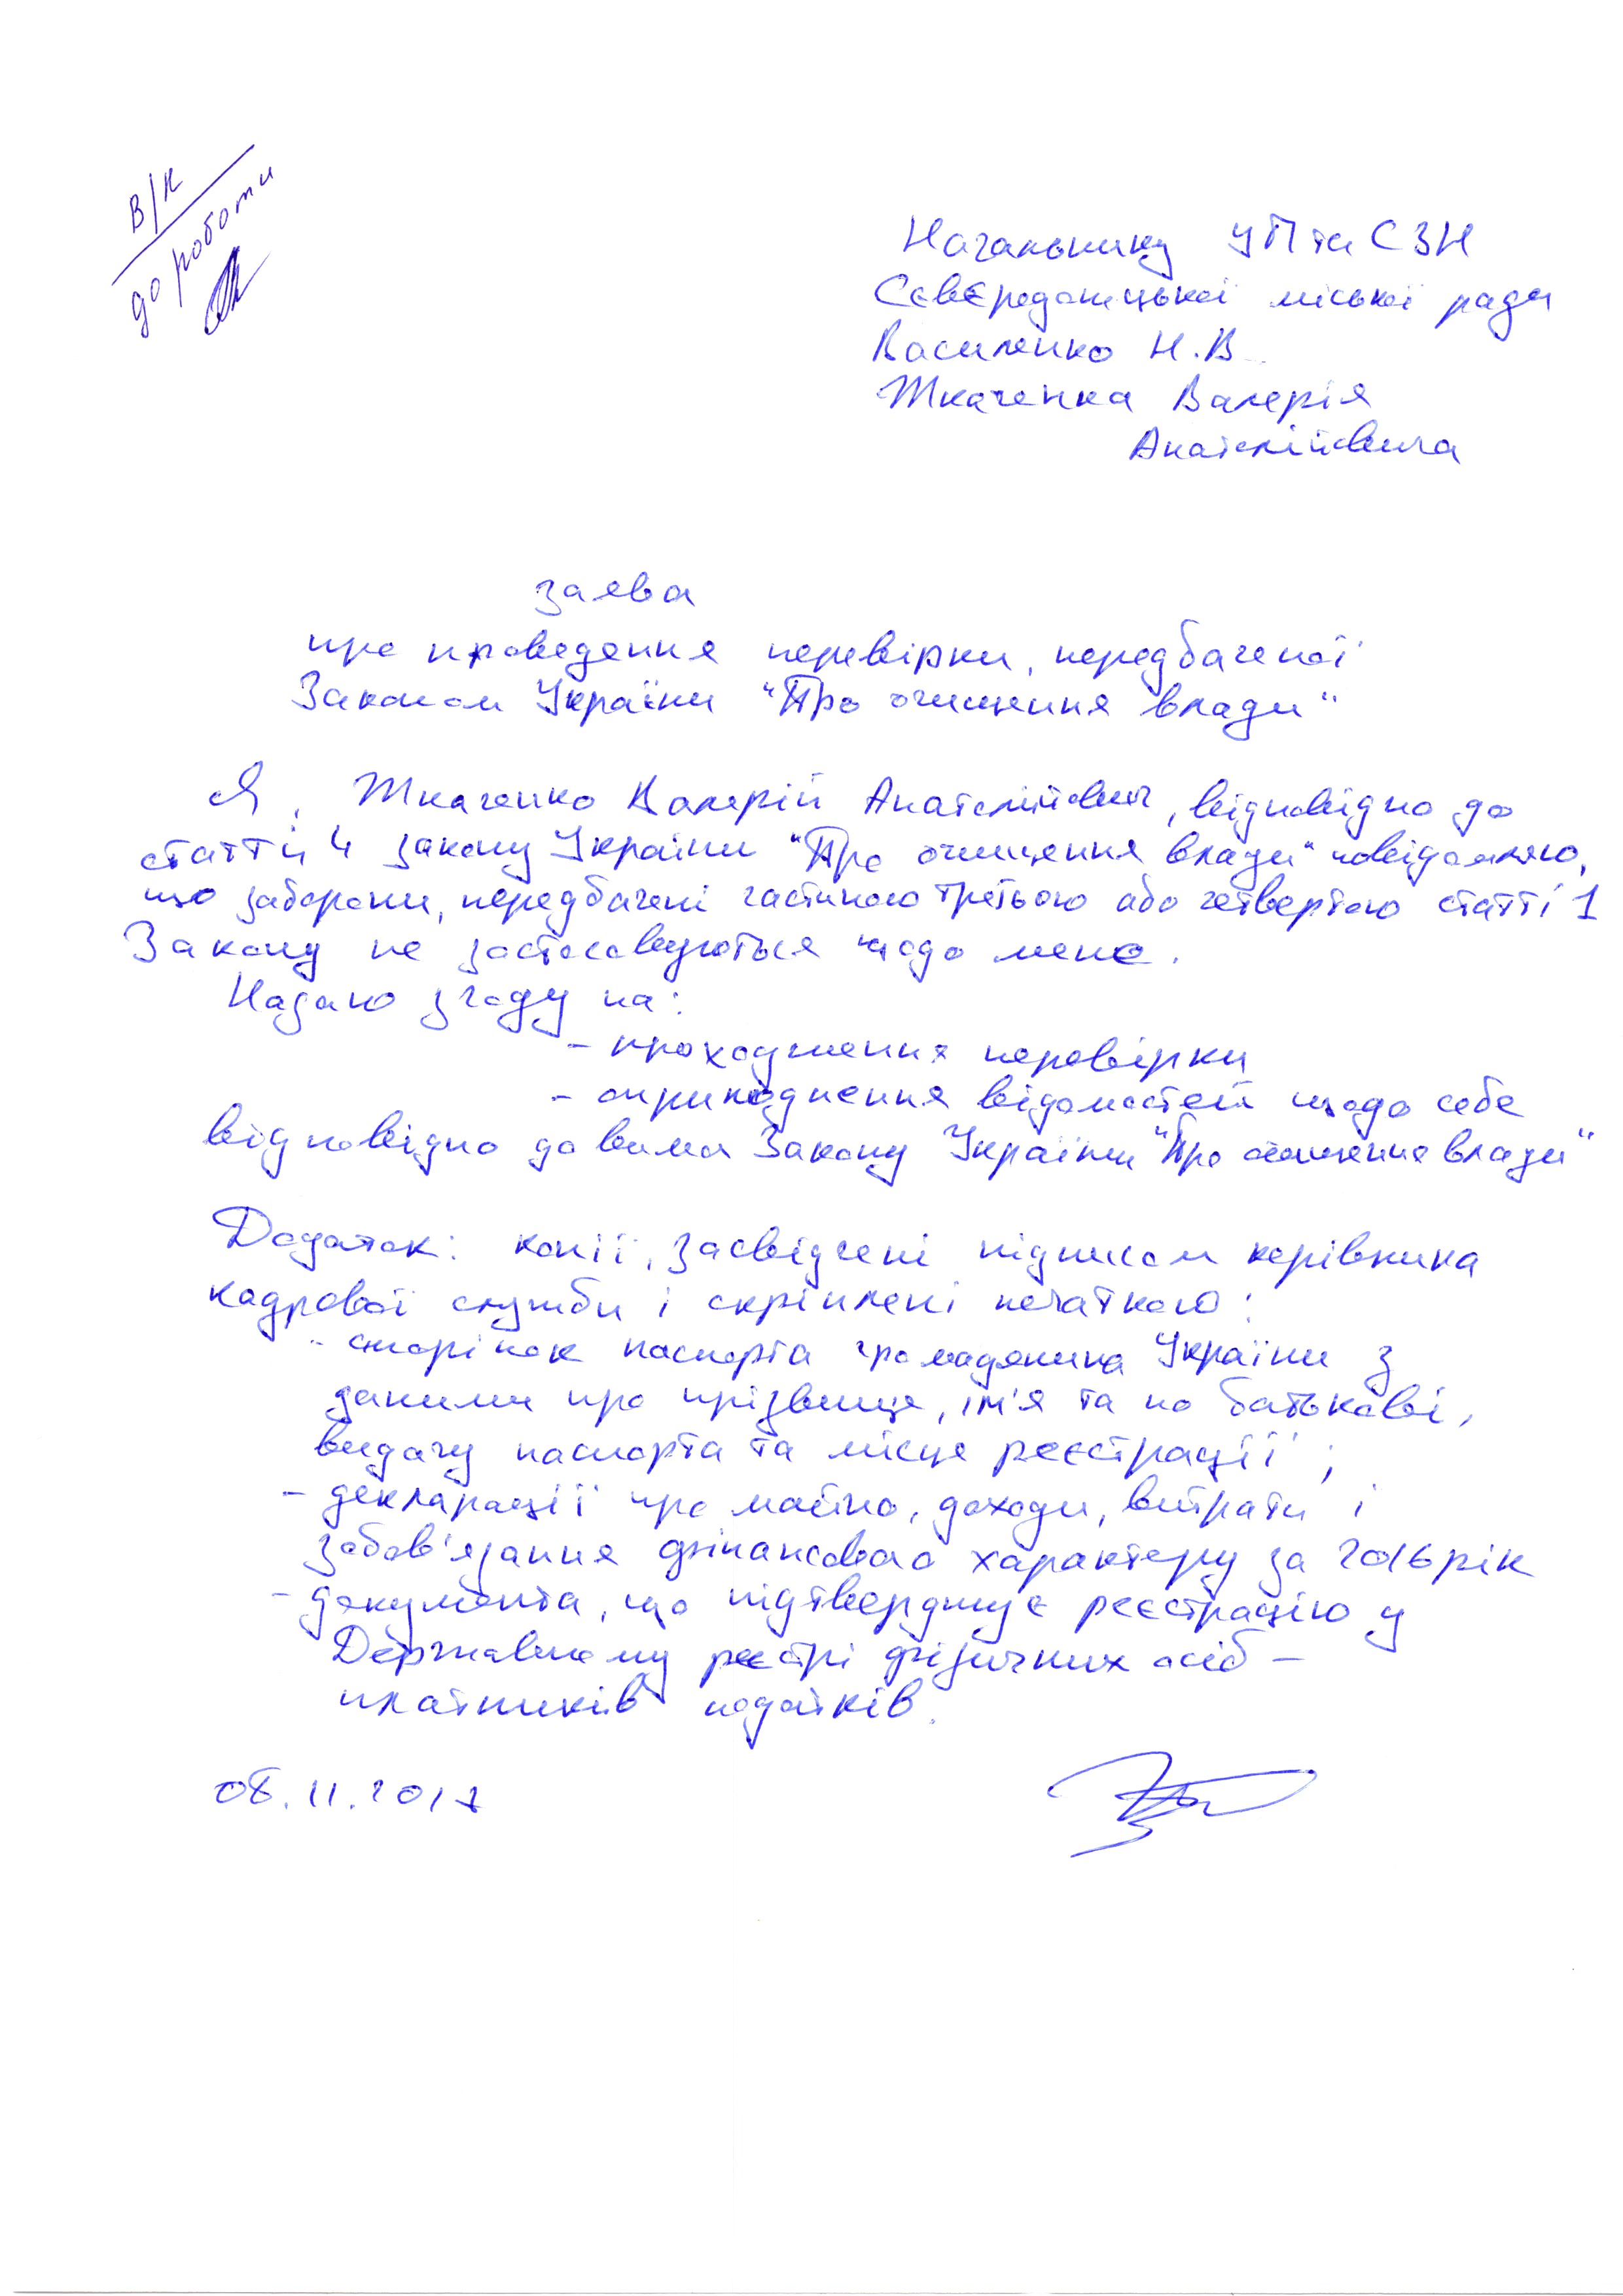 В/К
до роботи
Начальнику УП та СЗН
Сєвєродонецької міської ради
Василенко Н.В.
Ткаченка Валерія
Анатолійовича
заява
про проведення перевірки, передбаченої
Законом України "Про очищення влади"
Я, Ткаченко Валерій Анатолійович, відповідно до
статті 4 Закону України "Про очищення влади" повідомляю,
що заборони, передбачені частиною третьою або четвертою статті 1
Закону не застосовуються щодо мене.
Надаю згоду на:
- проходження перевірки
- оприлюднення відомостей щодо себе
відповідно до вимог Закону України "Про очищення влади"
Додаток: копії, засвідчені підписом керівника
кадрової служби і скріплені печаткою:
- сторінок паспорта громадянина України з
даними про прізвище, ім'я та по батькові,
видачу паспорта та місце реєстрації;
- декларації про майно, доходи, витрати і
зобов'язання фінансового характеру за 2016 рік
- документа, що підтверджує реєстрацію у
Державному реєстрі фізичних осіб -
платників податків.
08.11.2017